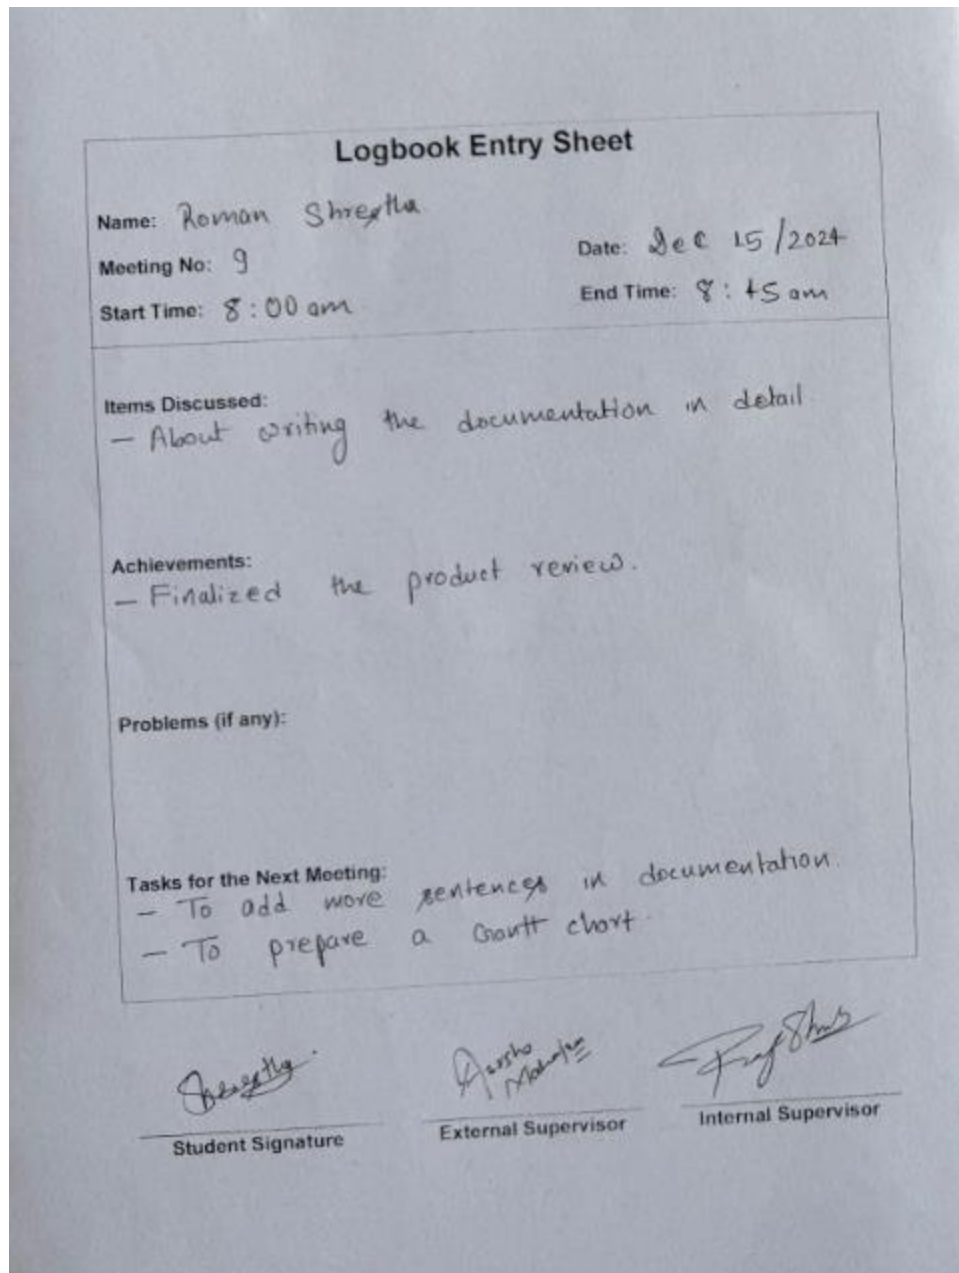 Logbook Entry Sheet
Name: Roman Shrestha
Date: Dec 15/2024
Meeting No: 9
Start Time: 8:00 am
End Time: 8:45 am
Items Discussed:
- About writing the documentation in detail
Achievements:
- Finalized the product review.
Problems (if any):
Tasks for the Next Meeting:
- To add more sentences in documentation.
- To prepare a Gantt chart.
Shrestha
Student Signature
External Supervisor
Internal Supervisor